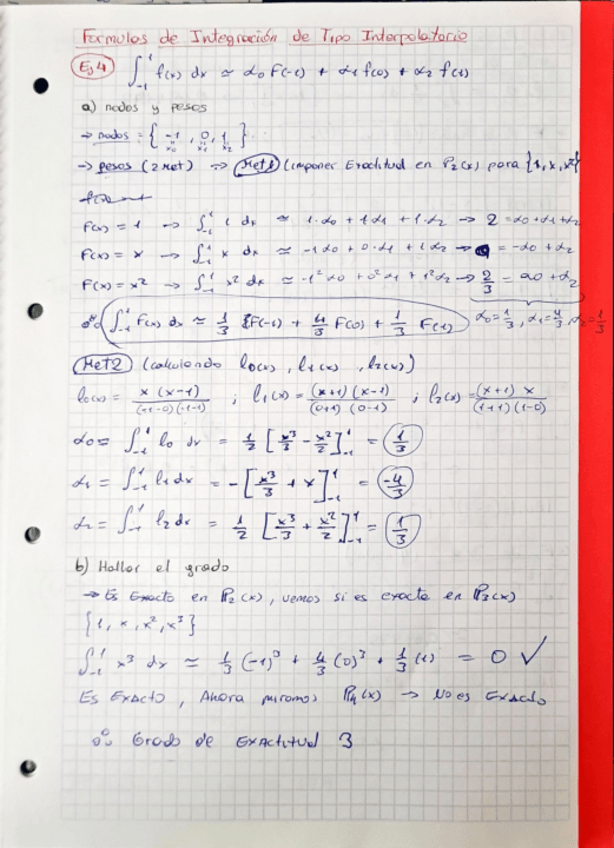 Formulas de Integración de Tipo Interpolatorio
Ej 4 ∫₋₁¹ f(x) dx ≃ α₀ F(-1) + α₁ f(0) + α₂ f(1)
a) nodos y pesos
→ nodos = { -1, 0, 1 }
x₀ x₁ x₂
→ pesos (2 Met) → Met 1 (imponer Exactitud en P₂(x) para {1, x, x²}
F(x) = 1 → ∫₋₁¹ 1 dx ≃ 1·α₀ + 1α₁ + 1·α₂ → 2 = α₀ + α₁ + α₂
F(x) = x → ∫₋₁¹ x dx ≃ -1α₀ + 0·α₁ + 1α₂ → 0 = -α₀ + α₂
F(x) = x² → ∫₋₁¹ x² dx ≃ -1²α₀ + 0²α₁ + 1²α₂ → 2/3 = α₀ + α₂
∴ ∫₋₁¹ F(x) dx ≃ 1/3 F(-1) + 4/3 F(0) + 1/3 F(1) α₀=1/3, α₁=4/3, α₂=1/3
Met 2 (calculando l₀(x), l₁(x), l₂(x))
l₀(x) = x (x-1) / (-1-0)(-1-1) ; l₁(x) = (x+1)(x-1) / (0+1)(0-1) ; l₂(x) = (x+1) x / (1+1)(1-0)
α₀ = ∫₋₁¹ l₀ dx = 1/2 [x³/3 - x²/2]₋₁¹ = 1/3
α₁ = ∫₋₁¹ l₁ dx = -[x³/3 + x]₋₁¹ = -4/3
α₂ = ∫₋₁¹ l₂ dx = 1/2 [x³/3 + x²/2]₋₁¹ = 1/3
b) Hallar el grado
→ Es Exacto en P₂(x), vemos si es exacta en P₃(x)
{1, x, x², x³}
∫₋₁¹ x³ dx ≃ 1/3 (-1)³ + 4/3 (0)³ + 1/3 (1) = 0 ✓
Es Exacto, Ahora miramos P₄(x) → No es Exacto
∴ Grado de Exactitud 3